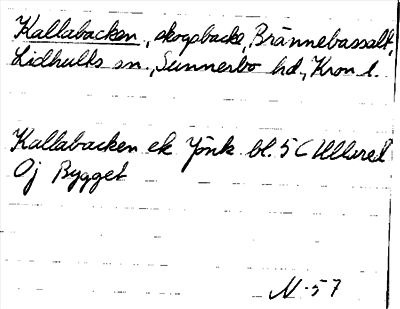 Kallabacken, skogsbacke, Brännebassalt,
Lidhults sn., Sunnerbo hd., Kron. l.
Kallabacken ek Jönk bl. 5 C Ullared
Oj Bygget
N-57